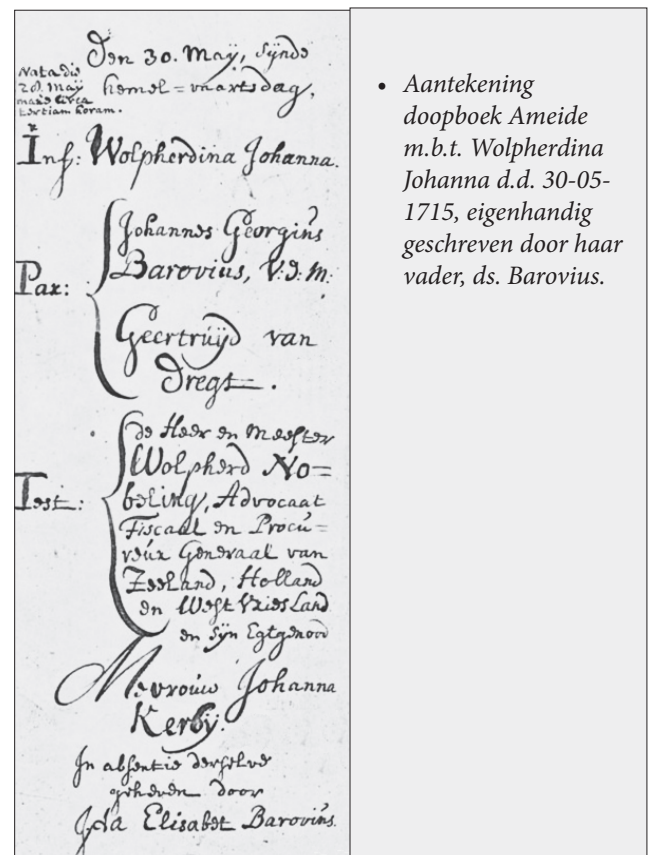 Den 30. Maÿ, sÿnde
hemel=vaartsdag,
Nata die
28. Maÿ
mane circa
tertiam horam.
Inf: Wolpherdina Johanna.
Par:
Johannes Georgius
Barovius, V.D.M.
Geertruÿd van
Dregt.
Test:
de Heer en Meester
Wolpherd No=
beling, Advocaat
Fiscaal en Procu=
reur Generaal van
Zeeland, Holland
en West Vriesland
en sÿn Egtgenood
Mevrouw Johanna
Kerbÿ.
In absentie derselve
geheven door
Ida Elisabet Barovius.
• Aantekening
doopboek Ameide
m.b.t. Wolpherdina
Johanna d.d. 30-05-
1715, eigenhandig
geschreven door haar
vader, ds. Barovius.